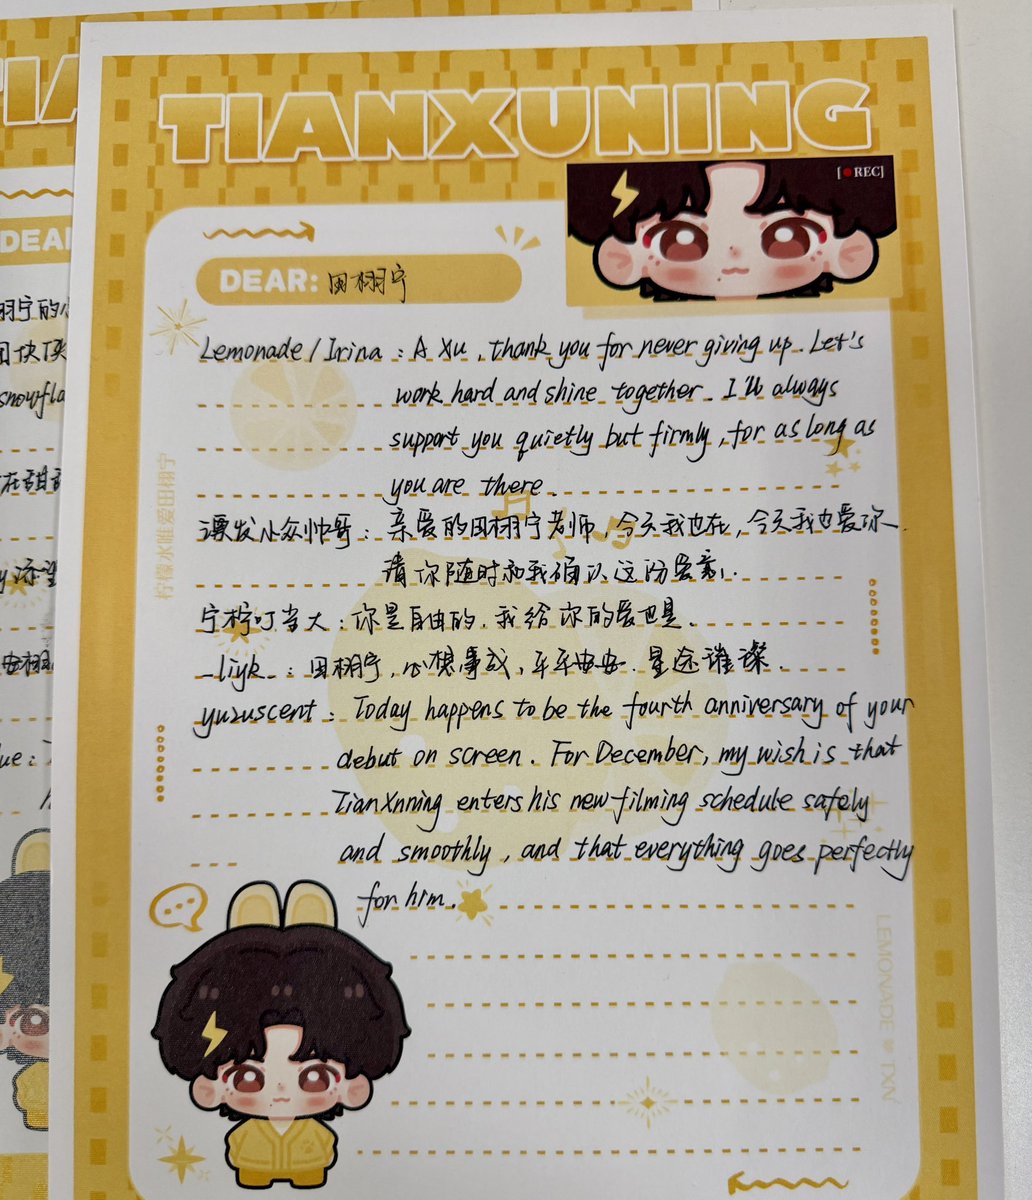 TIANXUNING
[REC]
DEAR: 田栩宁
Lemonade / Irina : A Xu , thank you for never giving up. Let's
work hard and shine together. I'll always
support you quietly but firmly , for as long as
you are there.
漂发小众帅哥 : 亲爱的田栩宁老师, 今天我也在, 今天我也爱你
请你随时和我确认这份爱意.
宁柠叮当大 : 你是自由的. 我给你的爱也是.
_liyk_ : 田栩宁, 心想事成, 平平安安. 星途璀璨.
yuzuscent : Today happens to be the fourth anniversary of your
debut on screen. For December, my wish is that
TianXnning enters his new filming schedule safely
and smoothly , and that everything goes perfectly
for him.
柠檬水唯爱田栩宁
LEMONADE ♥ TXN
TIA
DEAR
栩宁的
snowfla
ue :